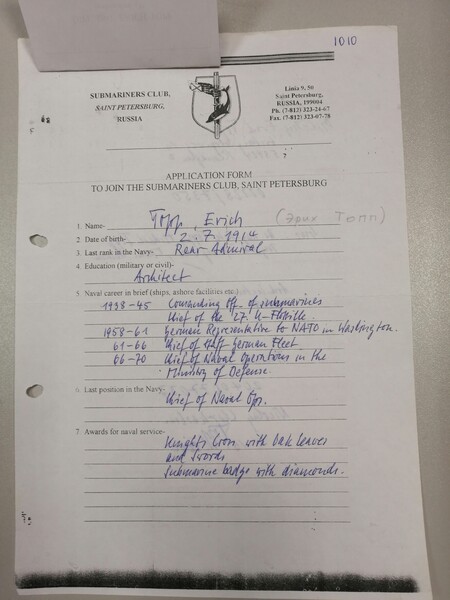 1010
SUBMARINERS CLUB,
SAINT PETERSBURG,
RUSSIA
Linia 9, 50
Saint Petersburg,
RUSSIA, 199004
Ph. (7-812) 323-24-67
Fax. (7-812) 323-07-78
?
APPLICATION FORM
TO JOIN THE SUBMARINERS CLUB, SAINT PETERSBURG
1. Name- Topp, Erich (Эрих Топп)
2. Date of birth- 2.7.1914
3. Last rank in the Navy- Rear Admiral
4. Education (military or civil)-
Architect
5. Naval career in brief (ships, ashore facilities etc.)-
Commanding off. of submarines
Chief of the 27. U-Flotille.
1958-61 German Representative to NATO in Washington.
61-66 Chief of Staff German Fleet
66-70 Chief of Naval Operations in the
Ministry of Defense
6. Last position in the Navy-
Chief of Naval Op.
7. Awards for naval service-
Knights Cross with Oak leaves
and Swords
Submarine badge with diamonds.